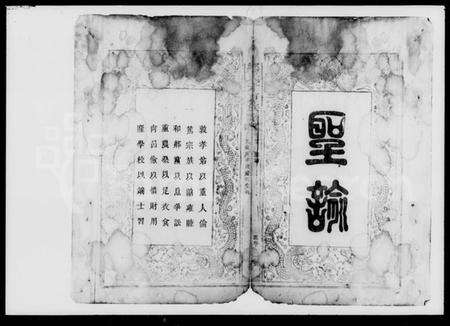 聖諭
敦孝弟以重人倫
篤宗族以昭雍睦
和鄉黨以息爭訟
重農桑以足衣食
尚節儉以惜財用
隆學校以端士習